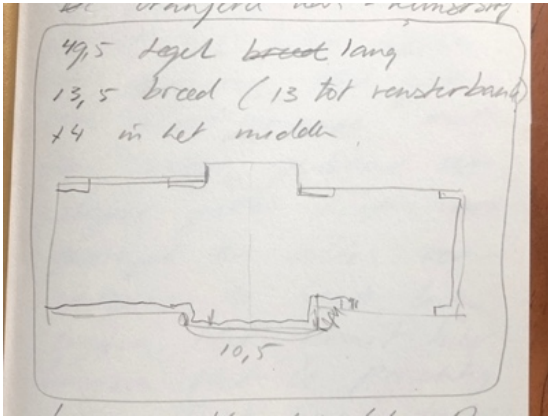 de oranjerie
49,5 tegel breed lang
13,5 breed ( 13 tot vensterbank)
x4 in het midden
10,5